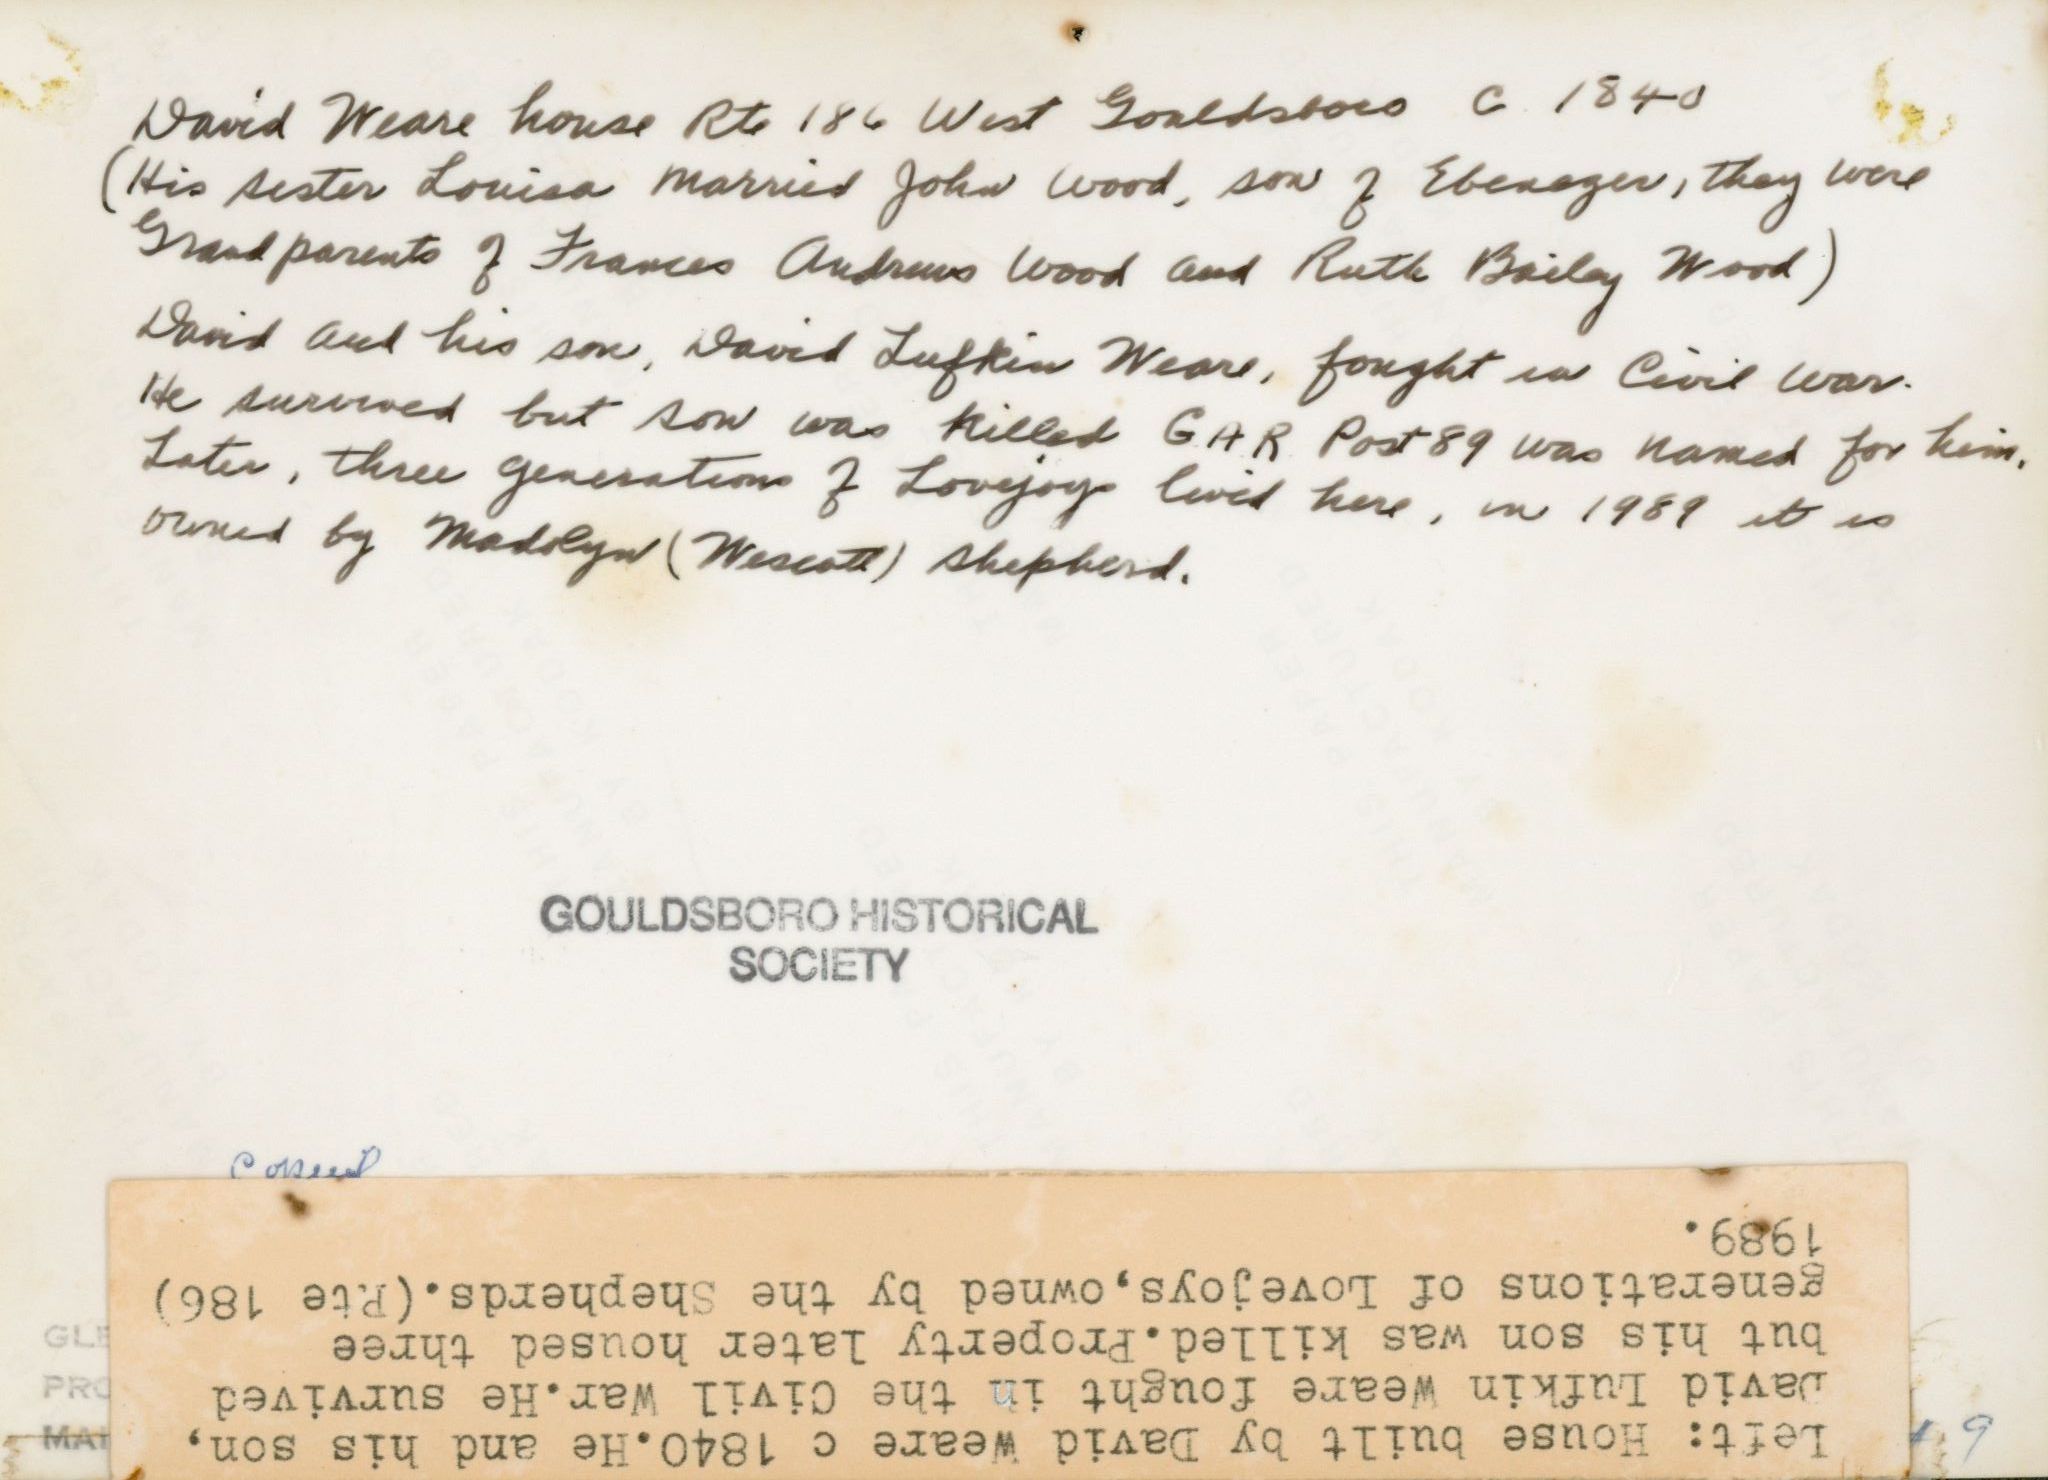 David Weare house Rte 186 West Gouldsboro C 1840
(His sister Louisa married John Wood, son of Ebenezer, they were
Grandparents of Frances Andrews Wood and Ruth Bailey Wood)
David and his son, David Lufkin Weare, fought in Civil War.
He survived but son was killed G.A.R. Post 89 was named for him.
Later, three generations of Lovejoys lived here, in 1989 it is
owned by Madolyn (Wescott) Shepherd.
GOULDSBORO HISTORICAL
SOCIETY
Left: House built by David Weare c 1840.He and his son,
David Lufkin Weare fought in the Civil War.He survived
but his son was killed.Property later housed three
generations of Lovejoys,owned by the Shepherds.(Rte 186)
1989.
GLE
PRO
MAI
# 9